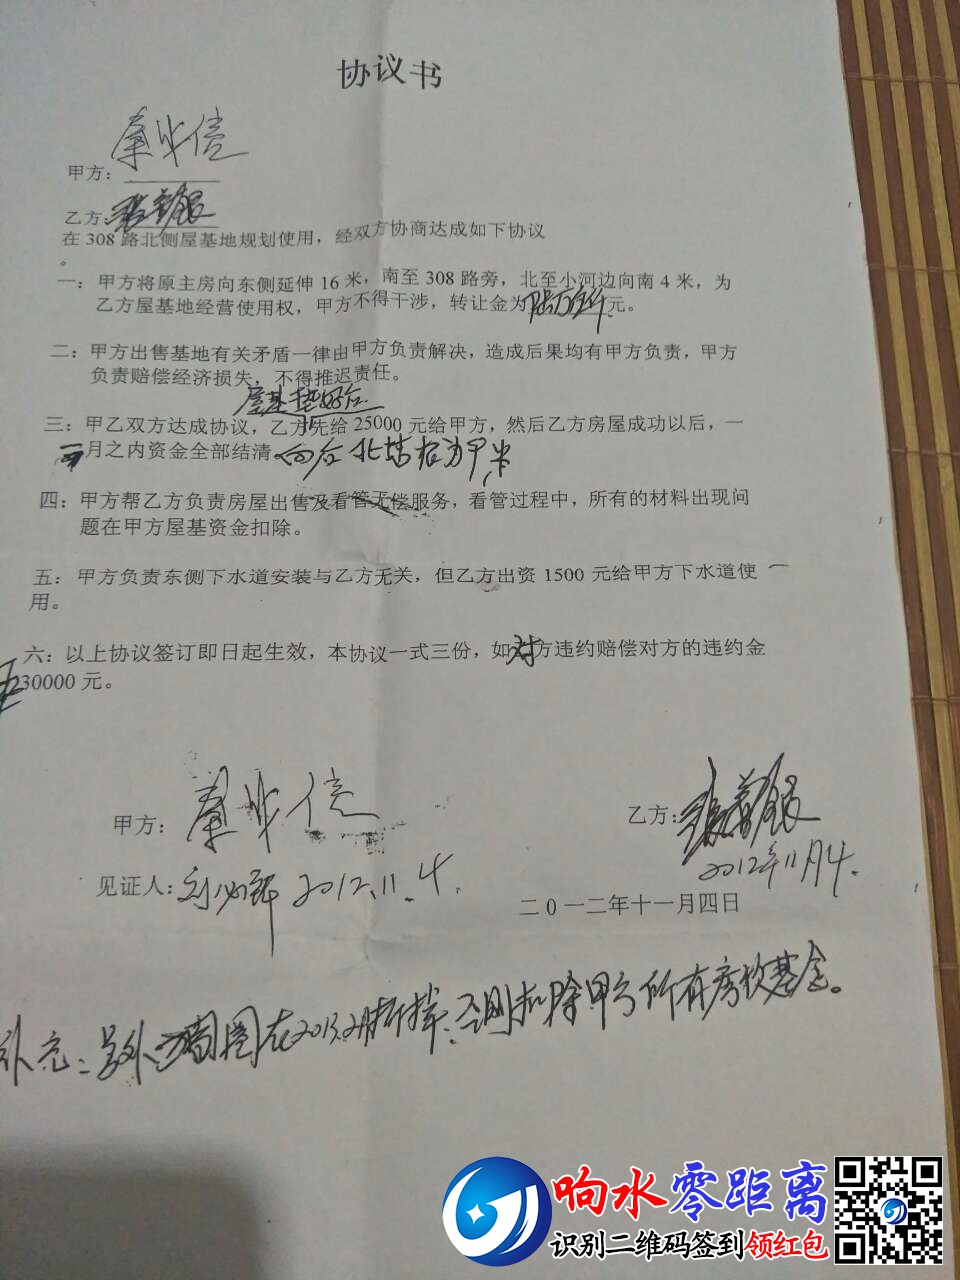 协议书
甲方：
乙方：
在 308 路北侧屋基地规划使用，经双方协商达成如下协议
。
一：甲方将原主房向东侧延伸 16 米，南至 308 路旁，北至小河边向南 4 米，为
乙方屋基地经营使用权，甲方不得干涉，转让金为陆万多元。
二：甲方出售基地有关矛盾一律由甲方负责解决，造成后果均有甲方负责，甲方
负责赔偿经济损失，不得推迟责任。
屋基垫好后
三：甲乙双方达成协议，乙方先给 25000 元给甲方，然后乙方房屋成功以后，一
月之内资金全部结清
四：甲方帮乙方负责房屋出售及看管无偿服务，看管过程中，所有的材料出现问
题在甲方屋基资金扣除。
五：甲方负责东侧下水道安装与乙方无关，但乙方出资 1500 元给甲方下水道使
用。
六：以上协议签订即日起生效，本协议一式三份，如对方违约赔偿对方的违约金
30000 元。
甲方：
乙方：
2012年11月4.
见证人： 2012.11.4.
二0一二年十一月四日
补充：另外 围在2013.2月拆掉，否则扣除甲方所有房款基金。
响水零距离
识别二维码签到领红包